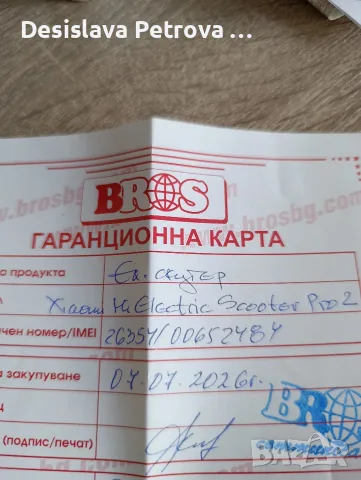 Desislava Petrova ...
BROS
ГАРАНЦИОННА КАРТА
а продукта Ел. скутер
Xiaomi Mi Electric Scooter Pro 2
ен номер/IMEI 26354/00652484
а закупуване 07.07.2026г.
(подпис/печат)
BROS
BAZAR